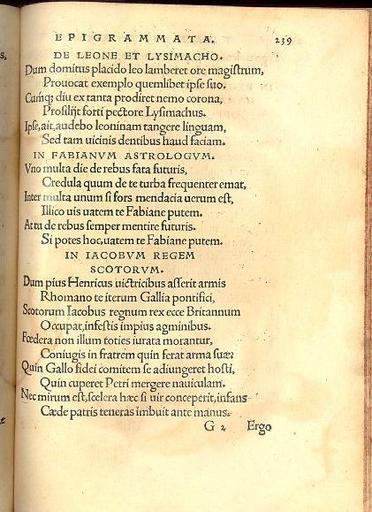 EPIGRAMMATA. 239
DE LEONE ET LYSIMACHO.
Dum domitus placido leo lamberet ore magistrum,
Prouocat exemplo quemlibet ipse suo.
Cumq; diu ex tanta prodiret nemo corona,
Prosilijt forti pectore Lysimachus.
Ipse, ait, audebo leoninam tangere linguam,
Sed tam uicinis dentibus haud faciam.
IN FABIANVM ASTROLOGVM.
Vno multa die de rebus fata futuris,
Credula quum de te turba frequenter emat,
Inter multa unum si fors mendacia uerum est,
Illico uis uatem te Fabiane putem.
At tu de rebus semper mentire futuris.
Si potes hoc, uatem te Fabiane putem.
IN IACOBVM REGEM
SCOTORVM.
Dum pius Henricus uictricibus asserit armis
Rhomano te iterum Gallia pontifici,
Scotorum Iacobus regnum rex ecce Britannum
Occupat, infestis impius agminibus.
Fœdera non illum toties iurata morantur,
Coniugis in fratrem quin ferat arma suæ:
Quin Gallo fidei comitem se adiungeret hosti,
Quin cuperet Petri mergere nauiculam.
Nec mirum est, scelera hæc si uir conceperit, infans
Cæde patris teneras imbuit ante manus.
G 2 Ergo